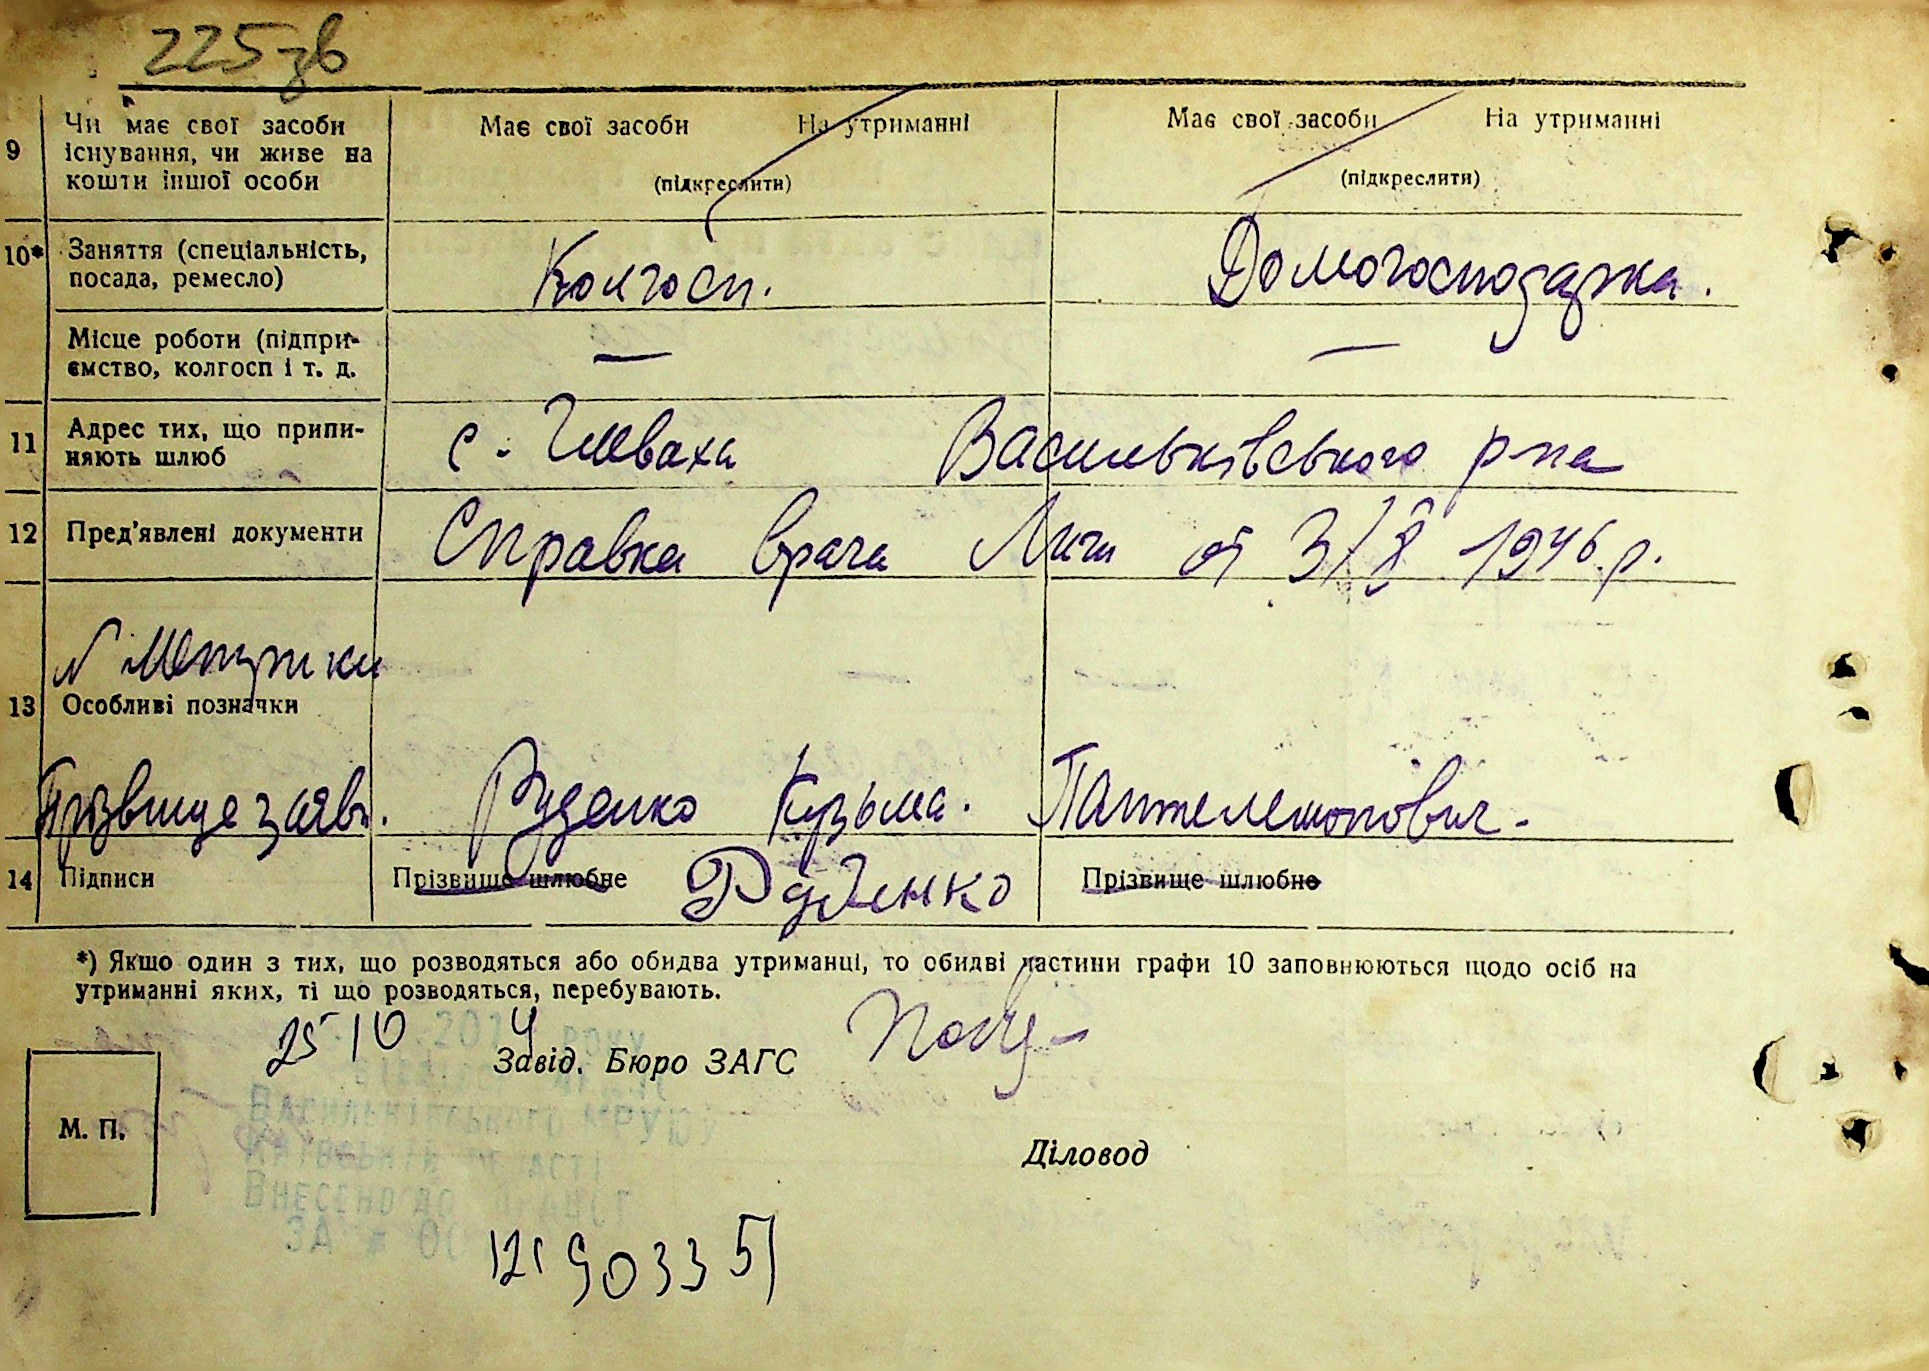 225зв
9 Чи має свої засоби існування, чи живе на кошти іншої особи
Має свої засоби На утриманні
(підкреслити)
Має свої засоби На утриманні
(підкреслити)
10* Заняття (спеціальність, посада, ремесло)
Колгосп. Домогосподарка.
Місце роботи (підприємство, колгосп і т. д.
— —
11 Адрес тих, що припиняють шлюб
с. Глеваха Васильківського р-на
12 Пред'явлені документи
Справка врача от 3/X 1946 р.
13 Особливі позначки
Прізвище заяв. Руденко Кузьма. Пантелемонович.
14 Підписи
Прізвище шлюбне Руденко Прізвище шлюбне
*) Якшо один з тих, що розводяться або обидва утриманці, то обидві частини графи 10 заповнюються щодо осіб на
утриманні яких, ті що розводяться, перебувають.
25 10 2014 року
Завід. Бюро ЗАГС
Васильківського МРУЮ
М. П.
Київської області
Діловод
Внесено до
ЗА № 00